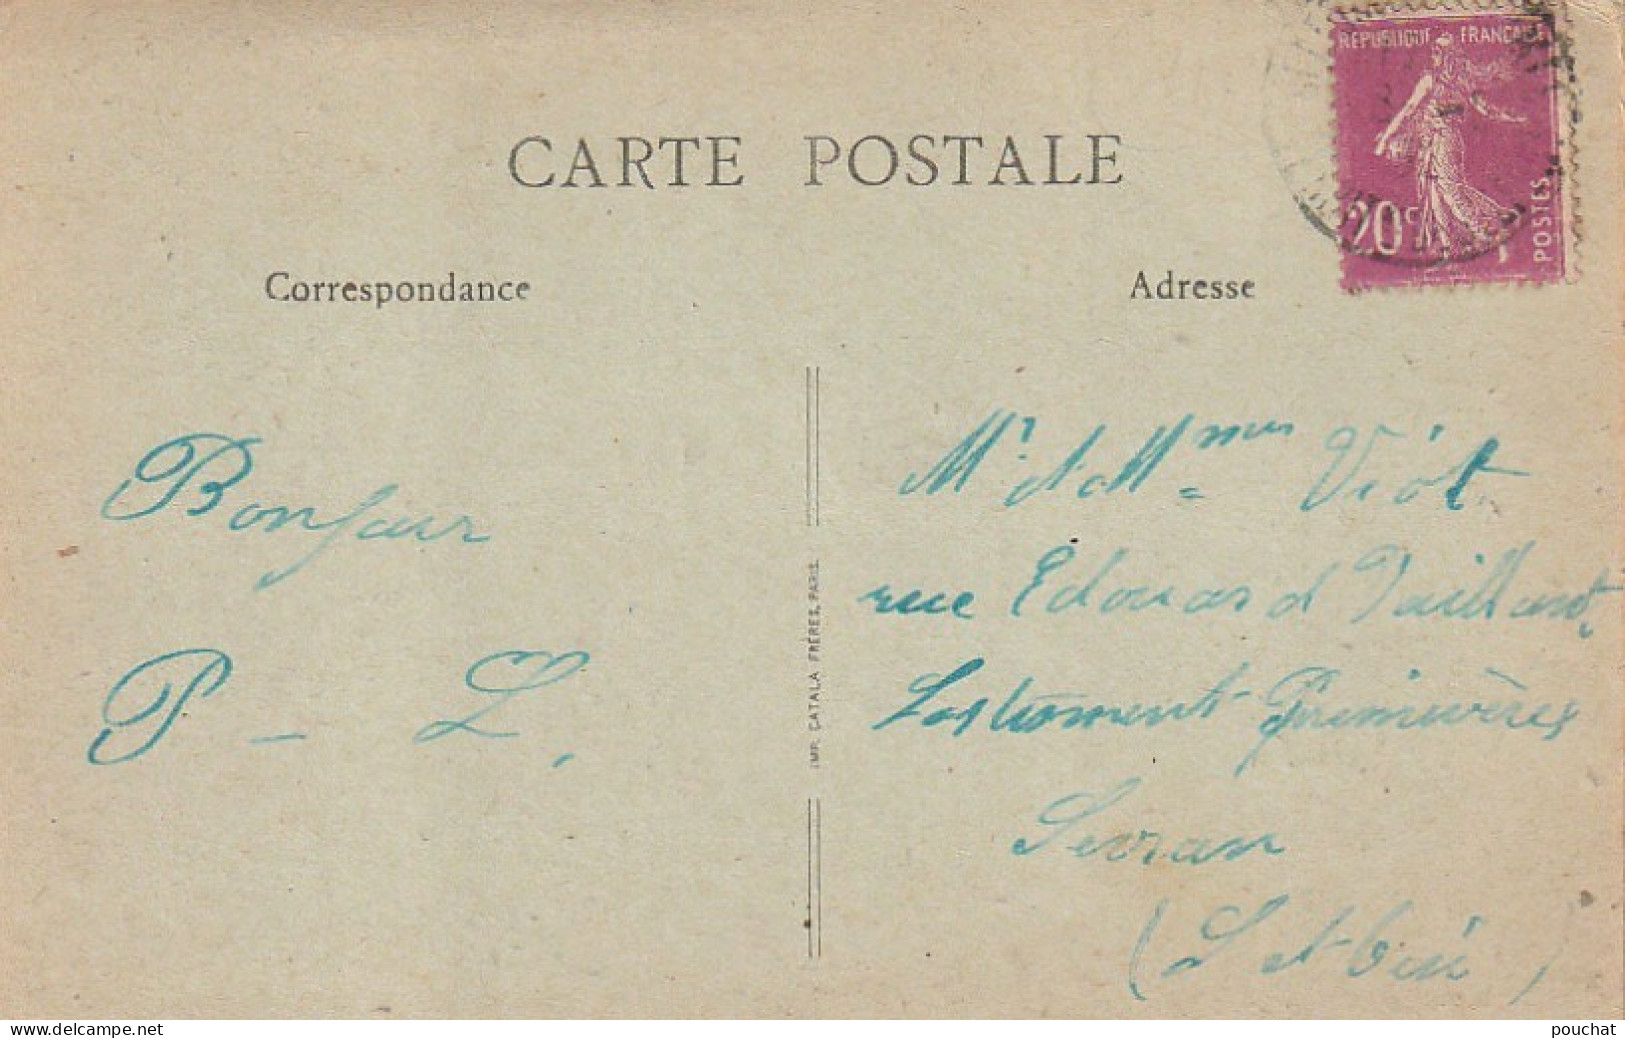 CARTE POSTALE
RÉPUBLIQUE FRANÇAISE
20c
POSTES
Correspondance
Adresse
Bonjour
P - L.
IMP. CATALA FRÈRES, PARIS.
Mr et Mmes Viot
rue Edouard Vaillant,
Lostiment Primevères
Sevran
(S et Oise)
delcampe.net
pouchat